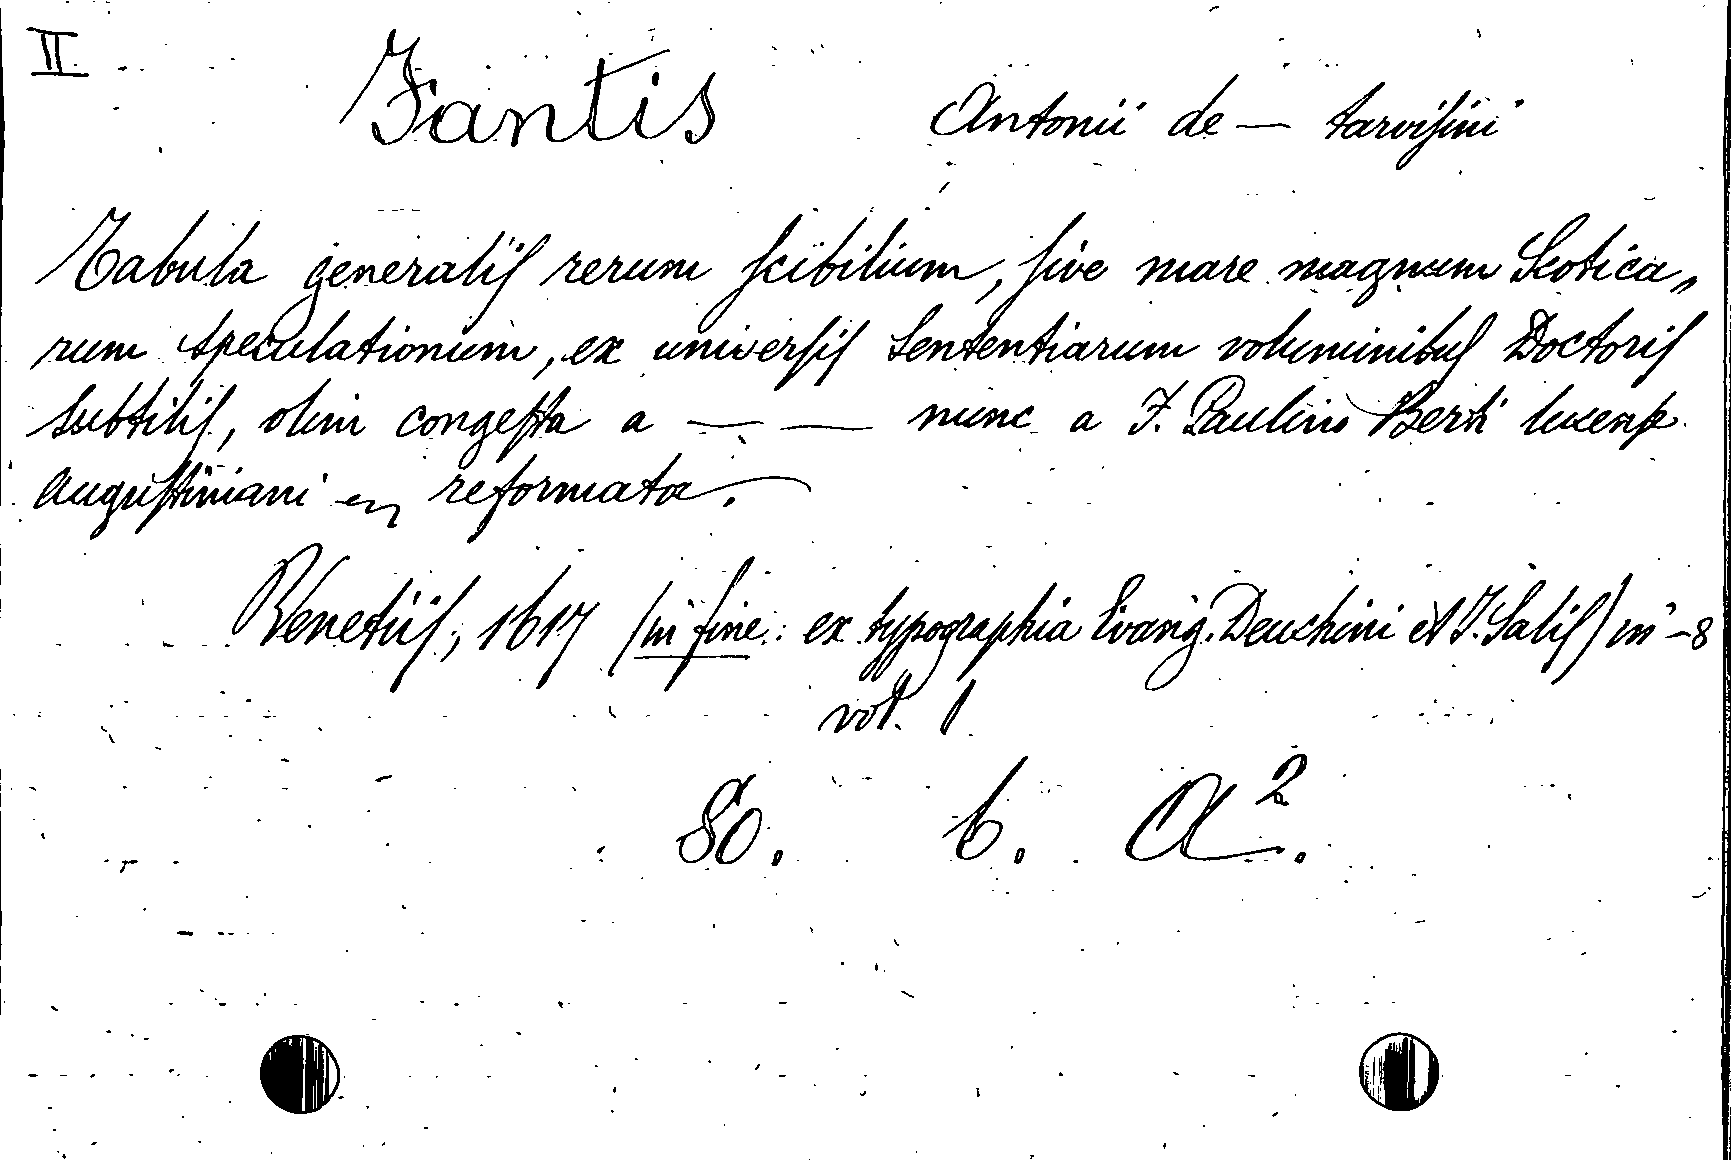 II
Fantis Antonii de — tarvisini
Tabula generalis rerum scibilium, sive mare magnum Scotica„
rum speculationum, ex universis Sententiarum voluminibus Doctoris
subtilis, olim congesta a — — nunc a F. Paulino Berti lucens.
Augustiniani reformata.
Venetiis, 1617 (in fine: ex typographia Evang. Deuchini et J. Salis) in-8
vol. 1
80. b. A².